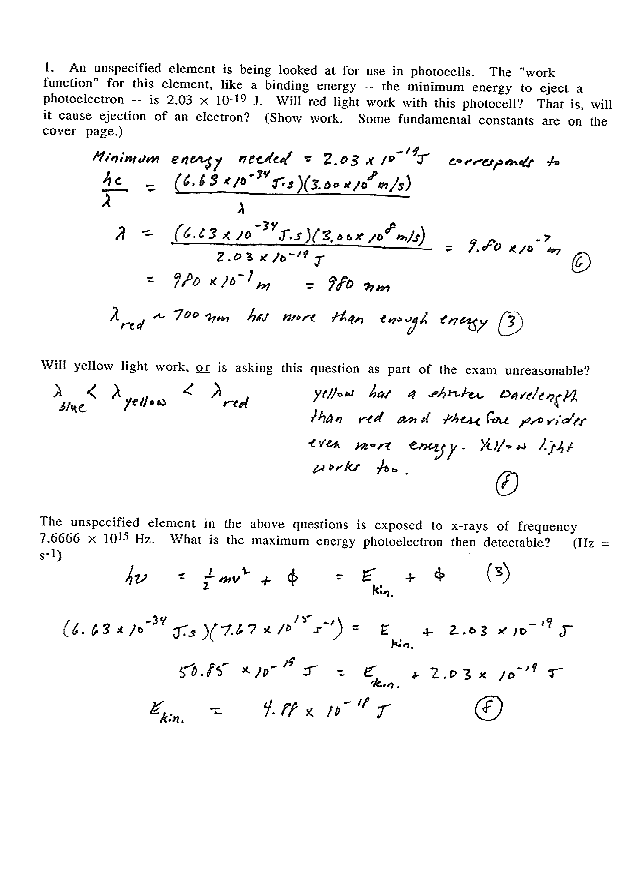 1. An unspecified element is being looked at for use in photocells. The "work
function" for this element, like a binding energy -- the minimum energy to eject a
photoelectron -- is 2.03 × 10⁻¹⁹ J. Will red light work with this photocell? That is, will
it cause ejection of an electron? (Show work. Some fundamental constants are on the
cover page.)
Minimum energy needed = 2.03 × 10⁻¹⁹ J corresponds to
hc/λ = (6.63 × 10⁻³⁴ J·s)(3.00 × 10⁸ m/s)/λ
λ = (6.63 × 10⁻³⁴ J·s)(3.00 × 10⁸ m/s)/2.03 × 10⁻¹⁹ J = 9.80 × 10⁻⁷ m (6)
= 980 × 10⁻⁹ m = 980 nm
λred ~ 700 nm has more than enough energy (3)
Will yellow light work, or is asking this question as part of the exam unreasonable?
λblue < λyellow < λred
yellow has a shorter wavelength
than red and therefore provides
even more energy. Yellow light
works too.
(8)
The unspecified element in the above questions is exposed to x-rays of frequency
7.6666 × 10¹⁵ Hz. What is the maximum energy photoelectron then detectable? (Hz =
s⁻¹)
hν = ½mv² + Φ = Ekin. + Φ (3)
(6.63 × 10⁻³⁴ J·s)(7.67 × 10¹⁵ s⁻¹) = Ekin. + 2.03 × 10⁻¹⁹ J
50.85 × 10⁻¹⁹ J = Ekin. + 2.03 × 10⁻¹⁹ J
Ekin. = 4.88 × 10⁻¹⁸ J (8)